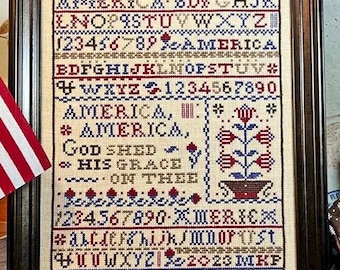 AMERICA BDFGHJK
LNOPQSTUVWXYZ
123456789 AMERICA
BDFGHJKLNOPQSTUV
WXYZ 1234567890
AMERICA,
AMERICA,
GOD SHED
HIS GRACE
ON THEE
1234567890 AMERICA
UVWXYZ 2023 MKF